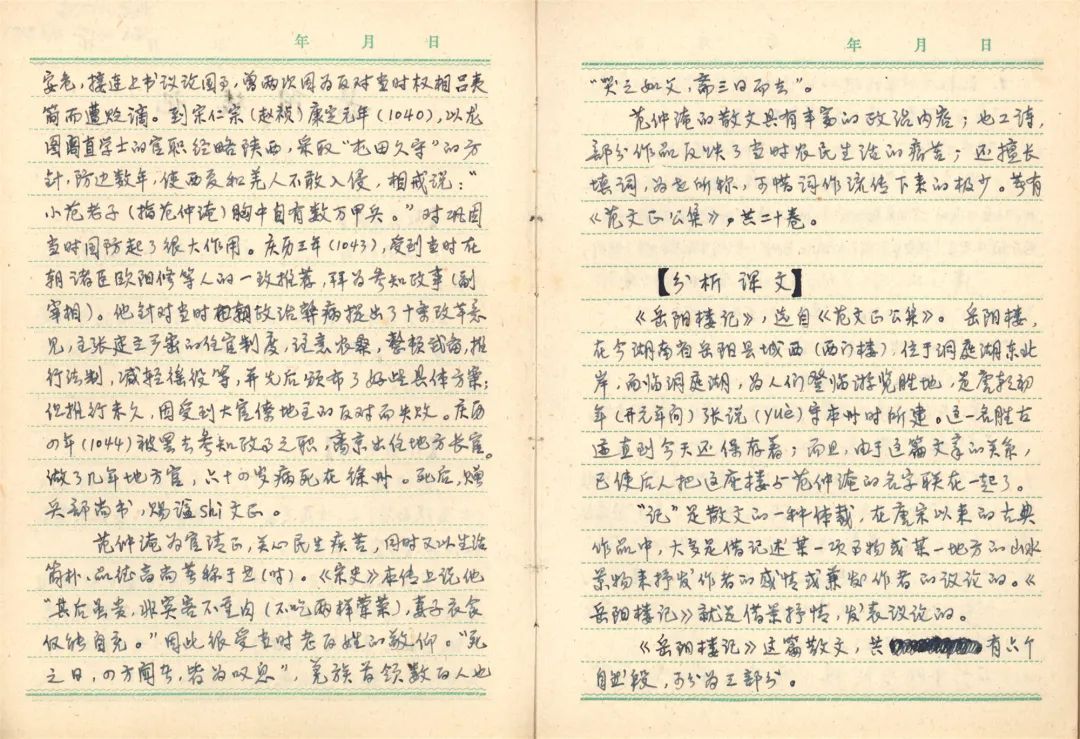 年 月 日
安危，接连上书议论国事，曾两次因为反对当时权相吕夷
简而遭贬谪。到宋仁宗（赵祯）康定元年（1040），以龙
图阁直学士的官职经略陕西，采取“屯田久守”的方
针，防边数年，使西夏和羌人不敢入侵，相戒说：“
小范老子（指范仲淹）胸中自有数万甲兵。”对巩固
当时国防起了很大作用。庆历三年（1043），受到当时在
朝诸臣欧阳修等人的一致推荐，拜为参知政事（副
宰相）。他针对当时朝政治弊病提出了十条改革意
见，主张建立严密的任官制度，注意农桑，整顿武备，推
行法制，减轻徭役等，并先后颁布了好些具体方案；
但推行未久，因受到大官僚地主的反对而失败。庆历
四年（1044）被罢去参知政事之职，离京出任地方长官。
做了几年地方官，六十四岁病死在徐州。死后，赠
兵部尚书，赐谥shì文正。
范仲淹为官清正，关心民生疾苦，同时又以生活
简朴、品德高尚著称于世（时）。《宋史》本传上说他
“其后虽贵，非宾客不重肉（不吃两样荤菜），妻子衣食
仅能自充。”因此很受当时老百姓的敬仰。“死
之日，四方闻者，皆为叹息”，羌族首领数百人也
年 月 日
“哭之如父，斋三日而去”。
范仲淹的散文具有丰富的政治内容；也工诗，
部分作品反映了当时农民生活的痛苦；还擅长
填词，为世所称，可惜词作流传下来的极少。著有
《范文正公集》，共二十卷。
【分析课文】
《岳阳楼记》，选自《范文正公集》。岳阳楼，
在今湖南省岳阳县城西（西门楼），位于洞庭湖东北
岸，面临洞庭湖，为人们登临游览胜地，是唐朝初
年（开元年间）张说（yuè）守本州时所建。这一名胜古
迹直到今天还保存着；而且，由于这篇文章的关系，
已使后人把这座楼与范仲淹的名字联在一起了。
“记”是散文的一种体裁，在唐宋以来的古典
作品中，大多是借记述某一项事物或某一地方的山水
景物来抒发作者的感情或兼发作者的议论的。《
岳阳楼记》就是借景抒情，发表议论的。
《岳阳楼记》这篇散文，共有六个
自然段，可分为三部分。